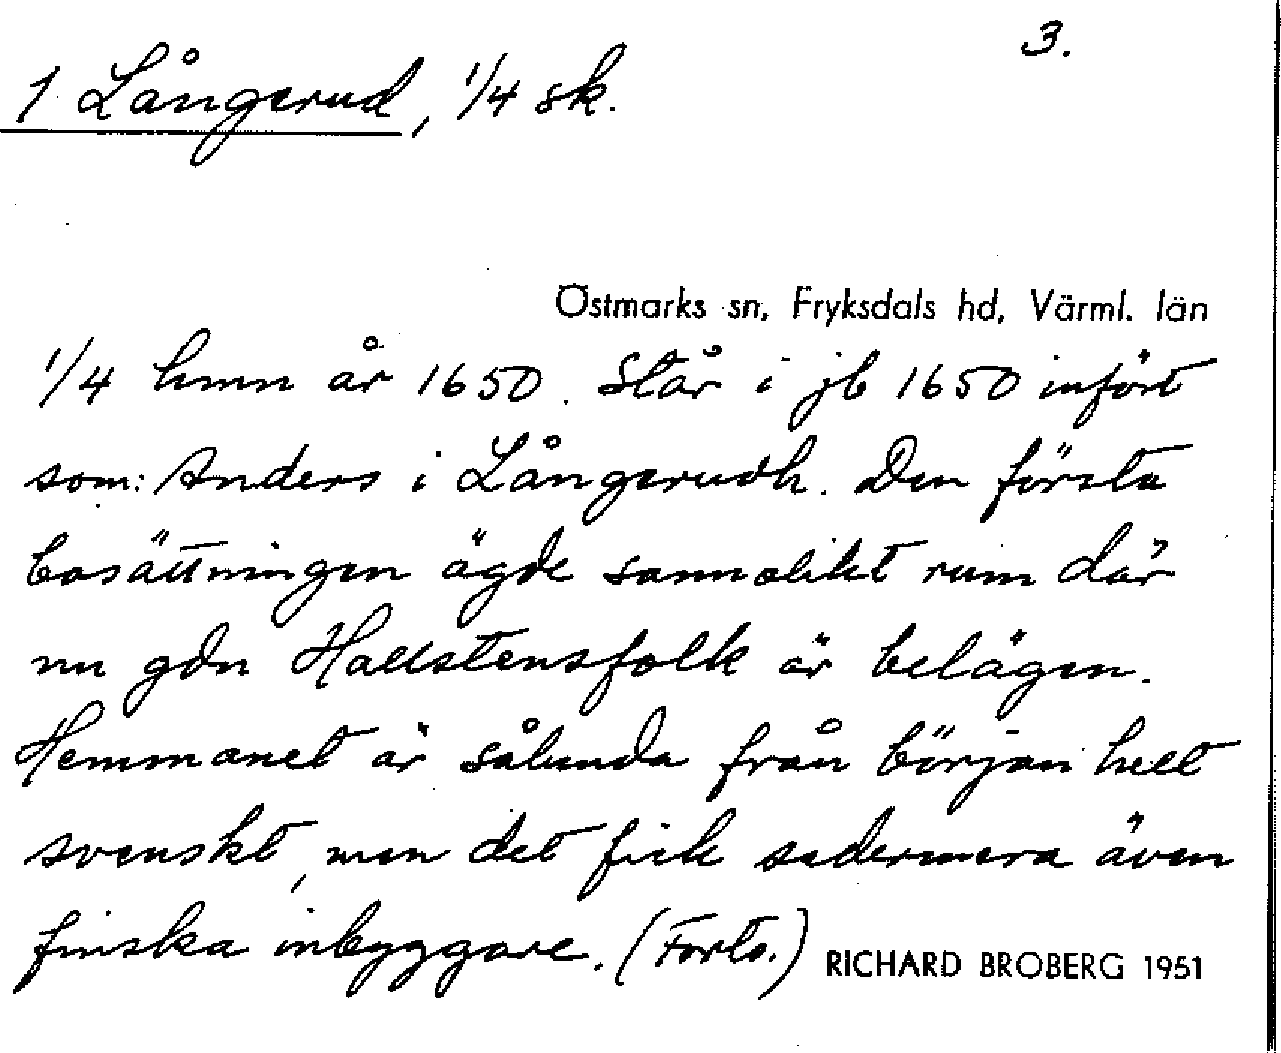 3.
1 Långerud, 1/4 sk.
Östmarks sn, Fryksdals hd, Värml. län
1/4 hmn år 1650. Står i jb 1650 infört
som: Anders i Långerudh. Den första
bosättningen ägde sannolikt rum där
nu gdn Hallstensfolk är belägen.
Hemmanet är sålunda från början helt
svenskt, men det fick sedermera även
finska inbyggare. (Forts.) RICHARD BROBERG 1951